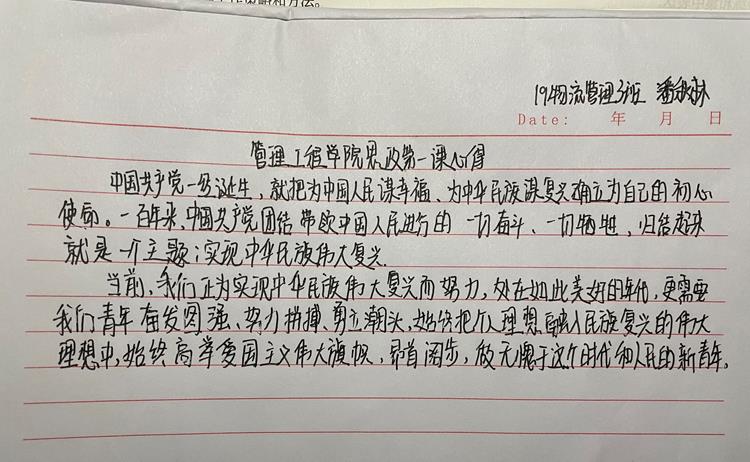 和方法。
19物流管理3班 潘秋林
Date: 年 月 日
管理工程学院思政第一课心得
中国共产党一经诞生，就把为中国人民谋幸福、为中华民族谋复兴确立为自己的初心
使命。一百年来，中国共产党团结带领中国人民进行的一切奋斗、一切牺牲，归结起来
就是一个主题：实现中华民族伟大复兴.
当前，我们正为实现中华民族伟大复兴而努力，处在如此美好的年代，更需要
我们青年奋发图强、努力拼搏、勇立潮头，始终把个人理想融入民族复兴的伟大
理想中，始终高举爱国主义伟大旗帜、昂首阔步，做无愧于这个时代和人民的新青年.